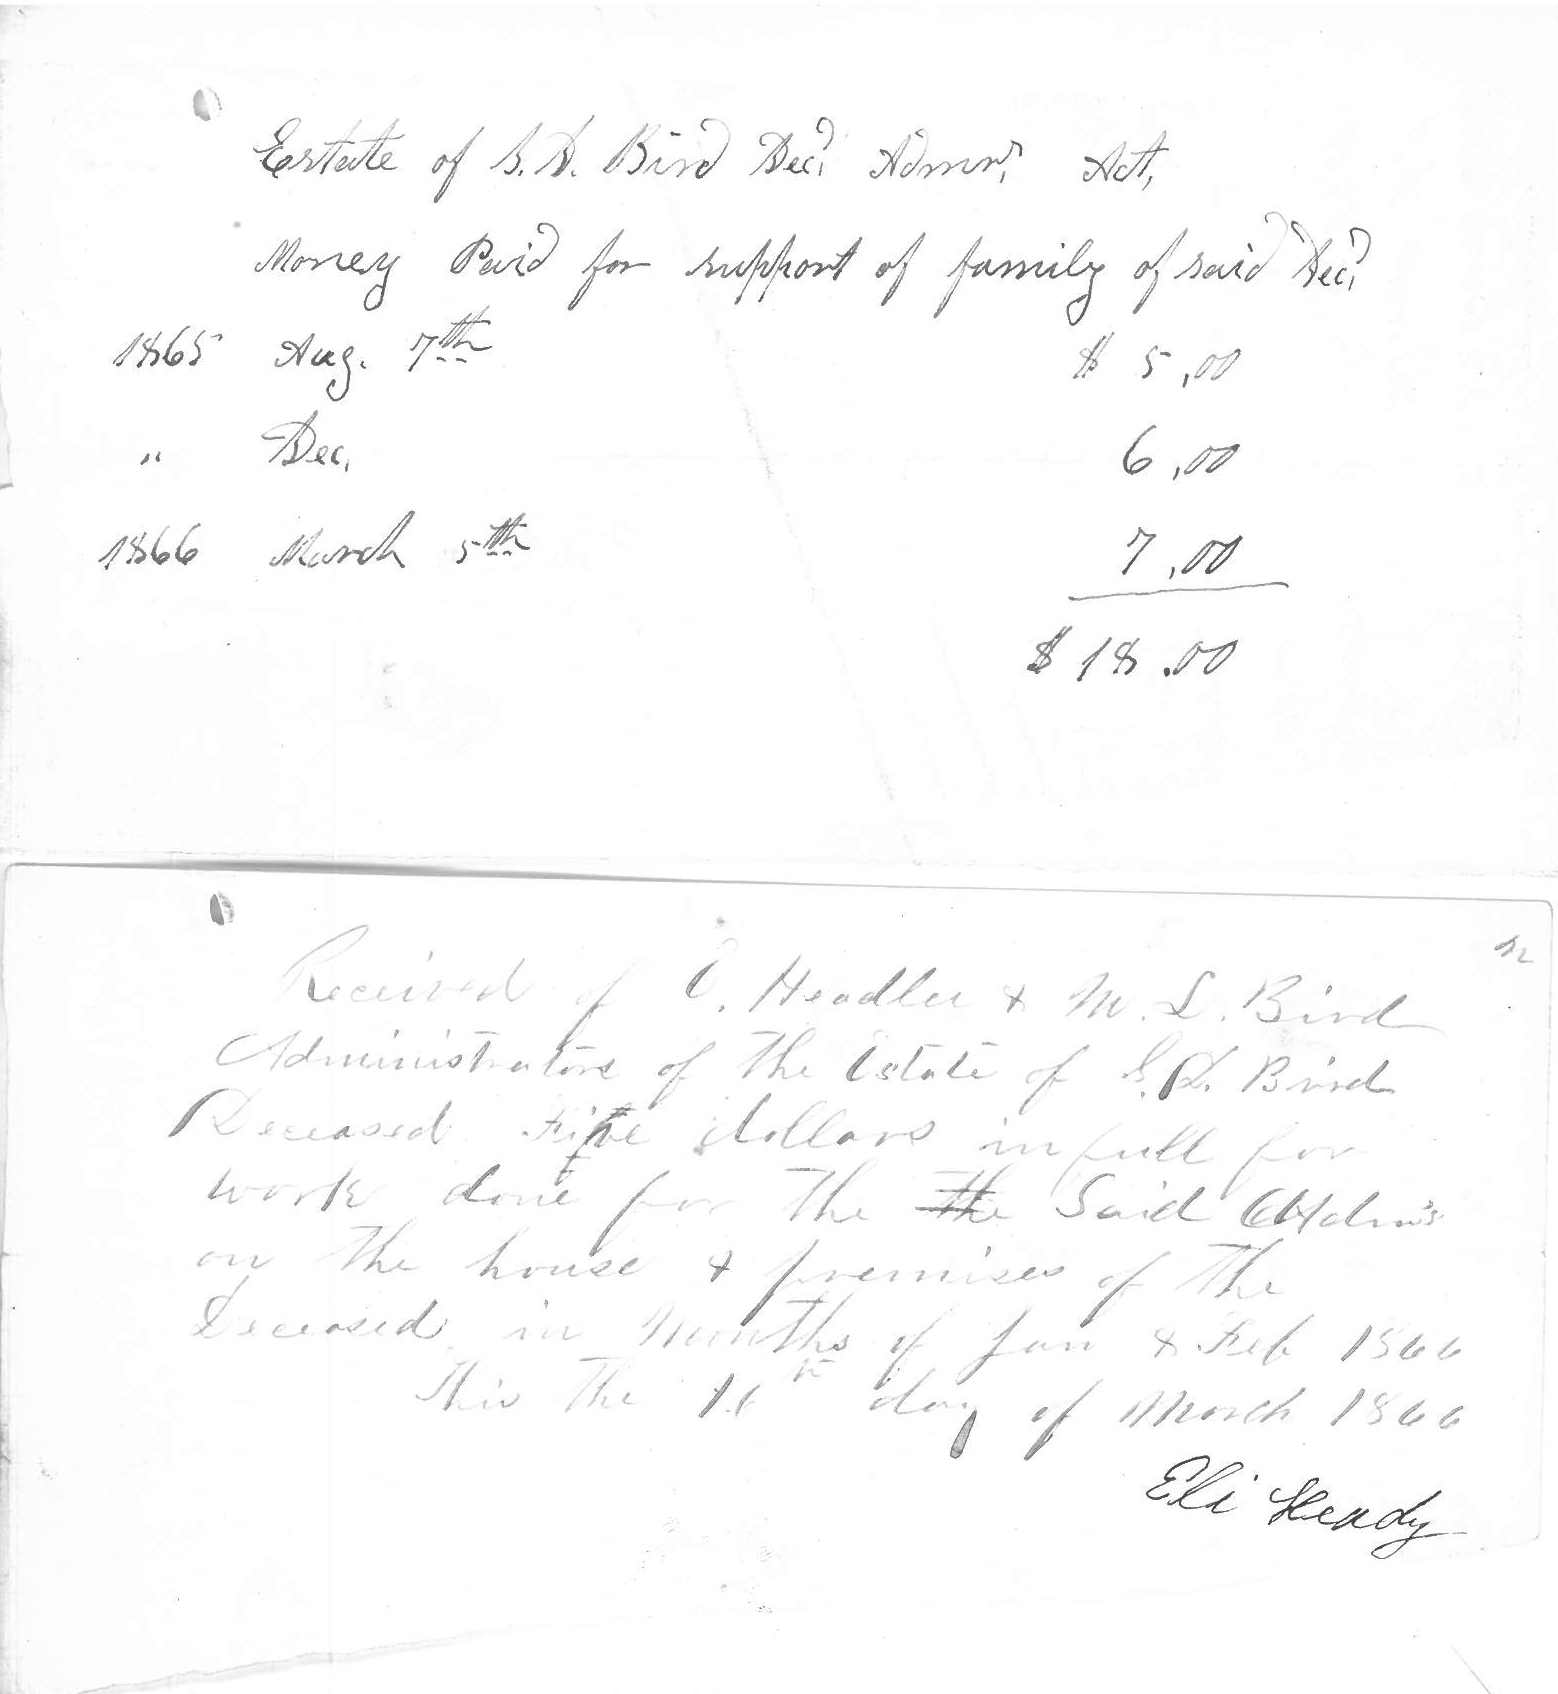 Estate of G. D. Bird Decd Admrs Act,
Money Paid for support of family of said Decd
1865 Aug. 7th $ 5,00
" Dec, 6,00
1866 March 5th 7,00
$ 18.00
Received of O. Headlee & M. L. Bird
Administrators of the Estate of G. D. Bird
Deceased Five dollars in full for
work done for the the Said Adm's
on the house & premises of the
Deceased in Months of Jan & Feb 1866
This the 16th day of March 1866
Eli Heady